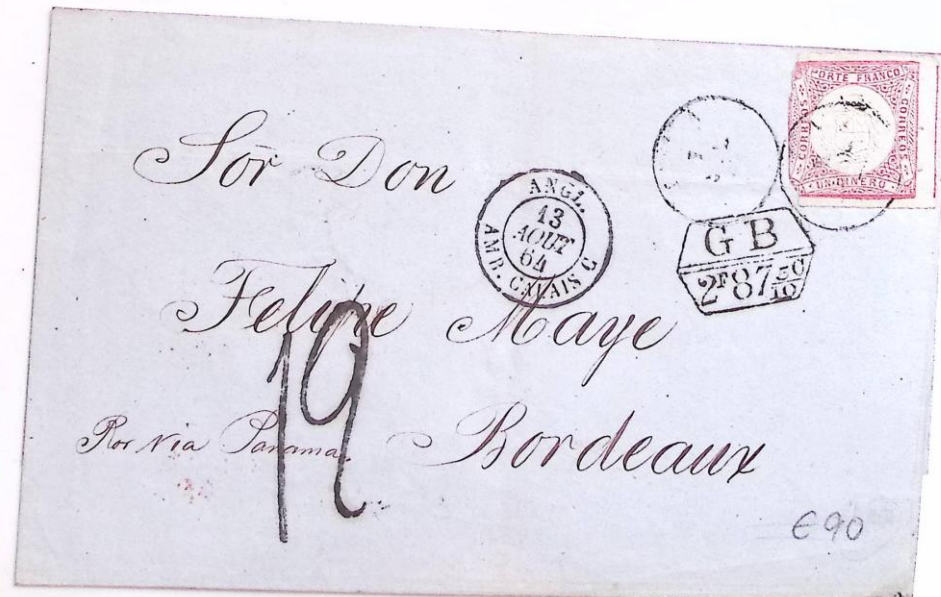 PORTE FRANCO
CORREOS
CORREOS
UN DINERO
Sor Don
ANGL.
13
AOUT
64
AMB. CALAIS C
GB
2F87 5C/10
Felipe Maye
19
Por via Panama.
Bordeaux
€90